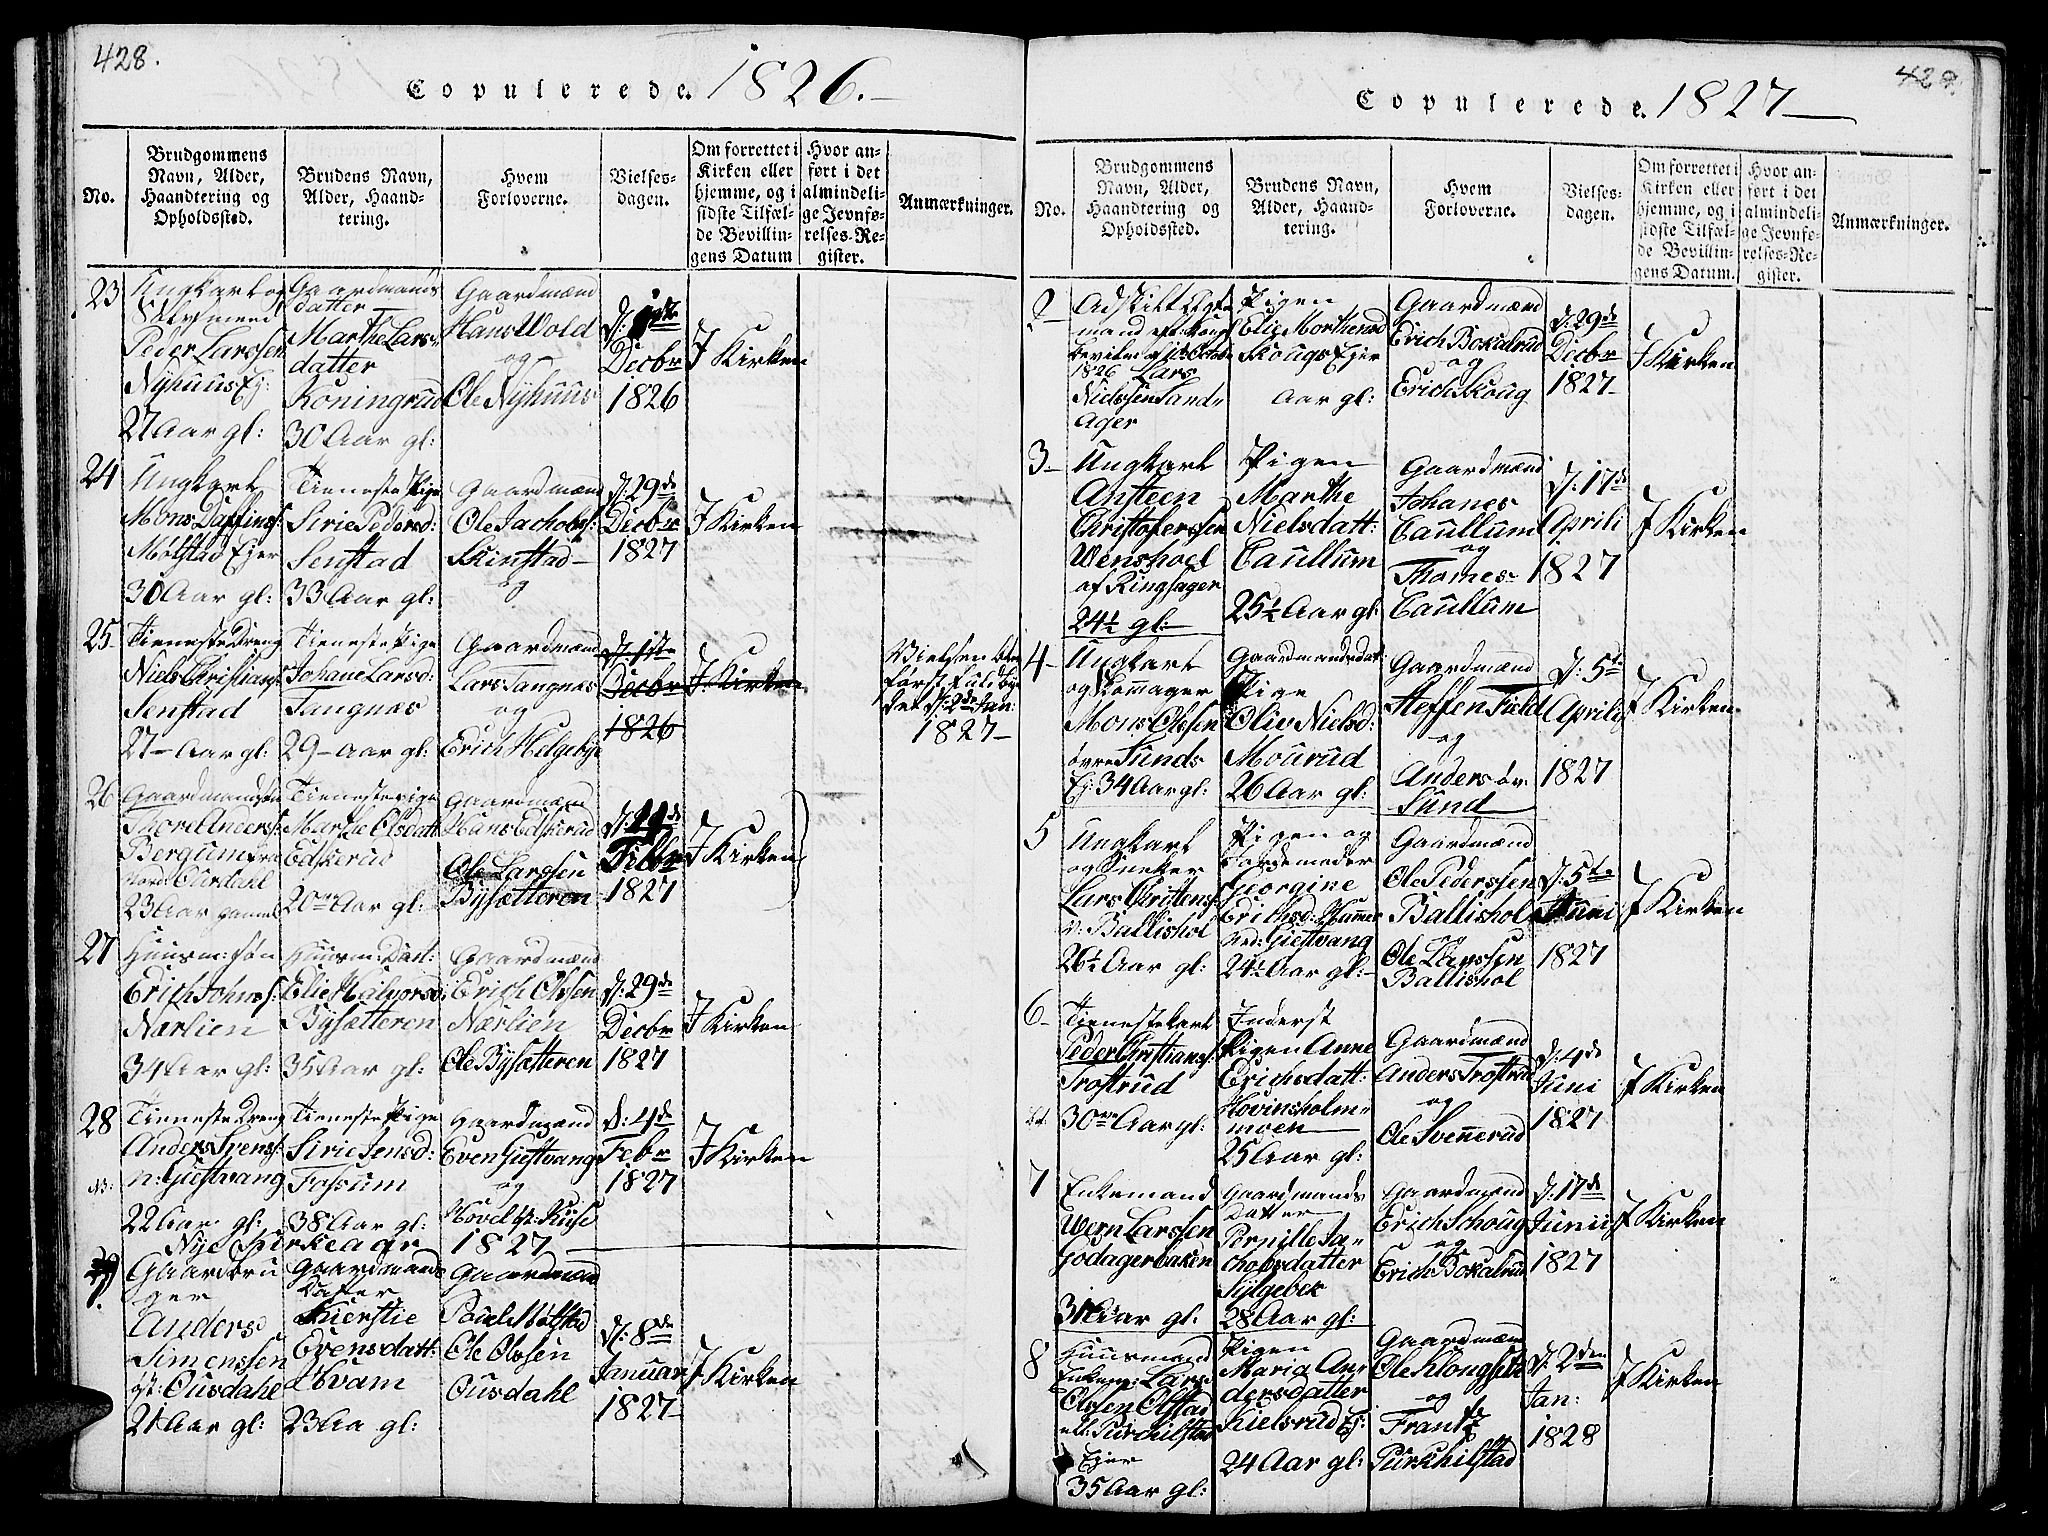 428.
Copulerede. 1826.
No.
Brudgommens
Navn, Alder,
Haandtering og
Opholdssted.
Brudens Navn,
Alder, Haand-
tering.
Hvem
Forloverne.
Vielses-
dagen.
Om forrettet i
Kirken eller
hjemme, og i
sidste Tilfæl-
de Bevillin-
gens Datum
Hvor an-
ført i det
almindeli-
ge Jevnfø-
relses-Re-
gister.
Anmærkninger.
23
Ungkarl og
Peder Larssen
Nyhuus Ej:
27 Aar gl:
Gaardmands
Datter
Marthe Lars-
datter
Koningrud
30 Aar gl:
Gaardmænd
Hans Wold
og
Ole Nyhuus
Decbr
1826
I Kirken
24
Ungkarl
Mons Daffins:
Mølstad Ejer
30 Aar gl:
Tieneste Pige
Sirie Peders d:
Senstad
33 Aar gl:
Gaardmænd
Ole Jachobs:
Skinstad
og
d: 29de
Decbr
1827
I Kirken
25
Tieneste Dreng
Niels Christians:
Senstad
27 Aar gl:
Tieneste Pige
Johane Larsd:
Tangnæs
29 Aar gl:
Gaardmænd
Lars Tangnæs
og
Erich Helgebye
d: 1ste
Decbr
1826
I Kirken
Vielsen blev
først fuldby
det d: 2de Jan:
1827
26
Gaardmandssøn
Thore Anders:
Bergum fra
Nord: Ousdahl
23 Aar gammel
Tienestepige
Marthe Olsdatt
Edskerud
20 Aar gl:
Gaardmænd
Hans Edskerud
Ole Larssen
Bysætteren
d: 29de
Febr
1827
I Kirken
27
Huusm: søn
Erich Johns:
Nærlien
34 Aar gl:
Huusm: Datt:
Elie Halvorsd:
Bysætteren
35 Aar gl:
Gaardmænd
Erich Olssen
Nærlien
Ole Bysætteren
d: 29de
Decbr
1827
I Kirken
28
Tieneste Dreng
Anders Svens:
n: Giestvang
22 Aar gl:
Tieneste Pige
Sirie Jensd:
Fossum
38 Aar gl:
Gaardmænd
Even Giestvang
og
d: 4de
Febr
1827
I Kirken
Nye Kirkeaar 1827
1.
Gaardbru
ger
Anders
Simenssen
gt: Ousdahl
21 Aar gl:
Gaardmands
Datter
Kierstie
Evensdatt:
Hvam
23 Aa gl:
Gaardmænd
Poul Mølstad
Ole Olssen
Ousdahl
d: 8de
Januar
1827
I Kirken
429.
Copulerede. 1827
No.
Brudgommens
Navn, Alder,
Haandtering og
Opholdssted.
Brudens Navn,
Alder, Haand-
tering.
Hvem
Forloverne.
Vielses-
dagen.
Om forrettet i
Kirken eller
hjemme, og i
sidste Tilfæl-
de Bevillin-
gens Datum.
Hvor an-
ført i det
almindeli-
ge Jevnfø-
relses-Re-
gister.
Anmærkninger.
2
Adskilt Ægte
mand
1826 Lars
Nielssen Sand-
Ager
Pigen
Elie
Skougs Ejer
Aar gl:
Gaardmænd
Erich Bokalrud
og
Erich Skoug
d: 29de
Decbr
1827
I Kirken
3
Ungkarl
Ansteen
Christoferssen
Wenshoel
af Ringsager
24½ gl:
Pigen
Marthe
Nielsdatt:
Caullum
25½ Aar gl:
Gaardmænd
Johanes
Caullum
og
Thomes
Caullum
d: 17de
Aprili
1827
I Kirken
4
Ungkarl
og Skomager
Mons Olssen
øvre Sunds
Ej: 34 Aar gl:
Gaardmandsdat
Pige
Oliv Nielsd:
Mourud
26 Aar gl:
Gaardmænd
Steffen Field
og
Anders öv:
Sund
d: 5te
Aprilis
1827
I Kirken
5
Ungkarl
og Sneker
Lars Christens:
v: Ballishol
26½ Aar gl:
Pigen og
Jordemoder
Georgine
Erichsd: Hammer
Ned: Giestvang
24½ Aar gl:
Gaardmænd
Ole Pederssen
Ballishol
Ballishol
d: 5te
Juni
1827
I Kirken
6
Tienestekarl
Peder Christians:
Trostrud
30 Aar gl:
Inderst
Pigen Anne
Erichsdatt:
Hovinsholm-
moen
25 Aar gl:
Gaardmænd
Anders Trostrud
og
Ole Svennerud
d: 4de
Juni
1827
I Kirken
7
Enkemand
Wern Larssen
Godagerbaken
31 Aar gl:
Gaardmands
Datter
Pernille Ja-
chobsdatter
Sylgebek
28 Aar gl:
Gaardmænd
Erich Schoug
og
Erich Bokalrud
d: 17de
Junii
1827
I Kirken
8
Huusmand
Enkem: Lars
Olssen Olstad
Ejer
35 Aar gl:
Pigen
Maria An-
dersdatter
Kielsrud Ej:
24 Aar gl:
Gaardmænd
og
Frantz
Purkhilstad
d: 2den
Jan:
1828
I Kirken